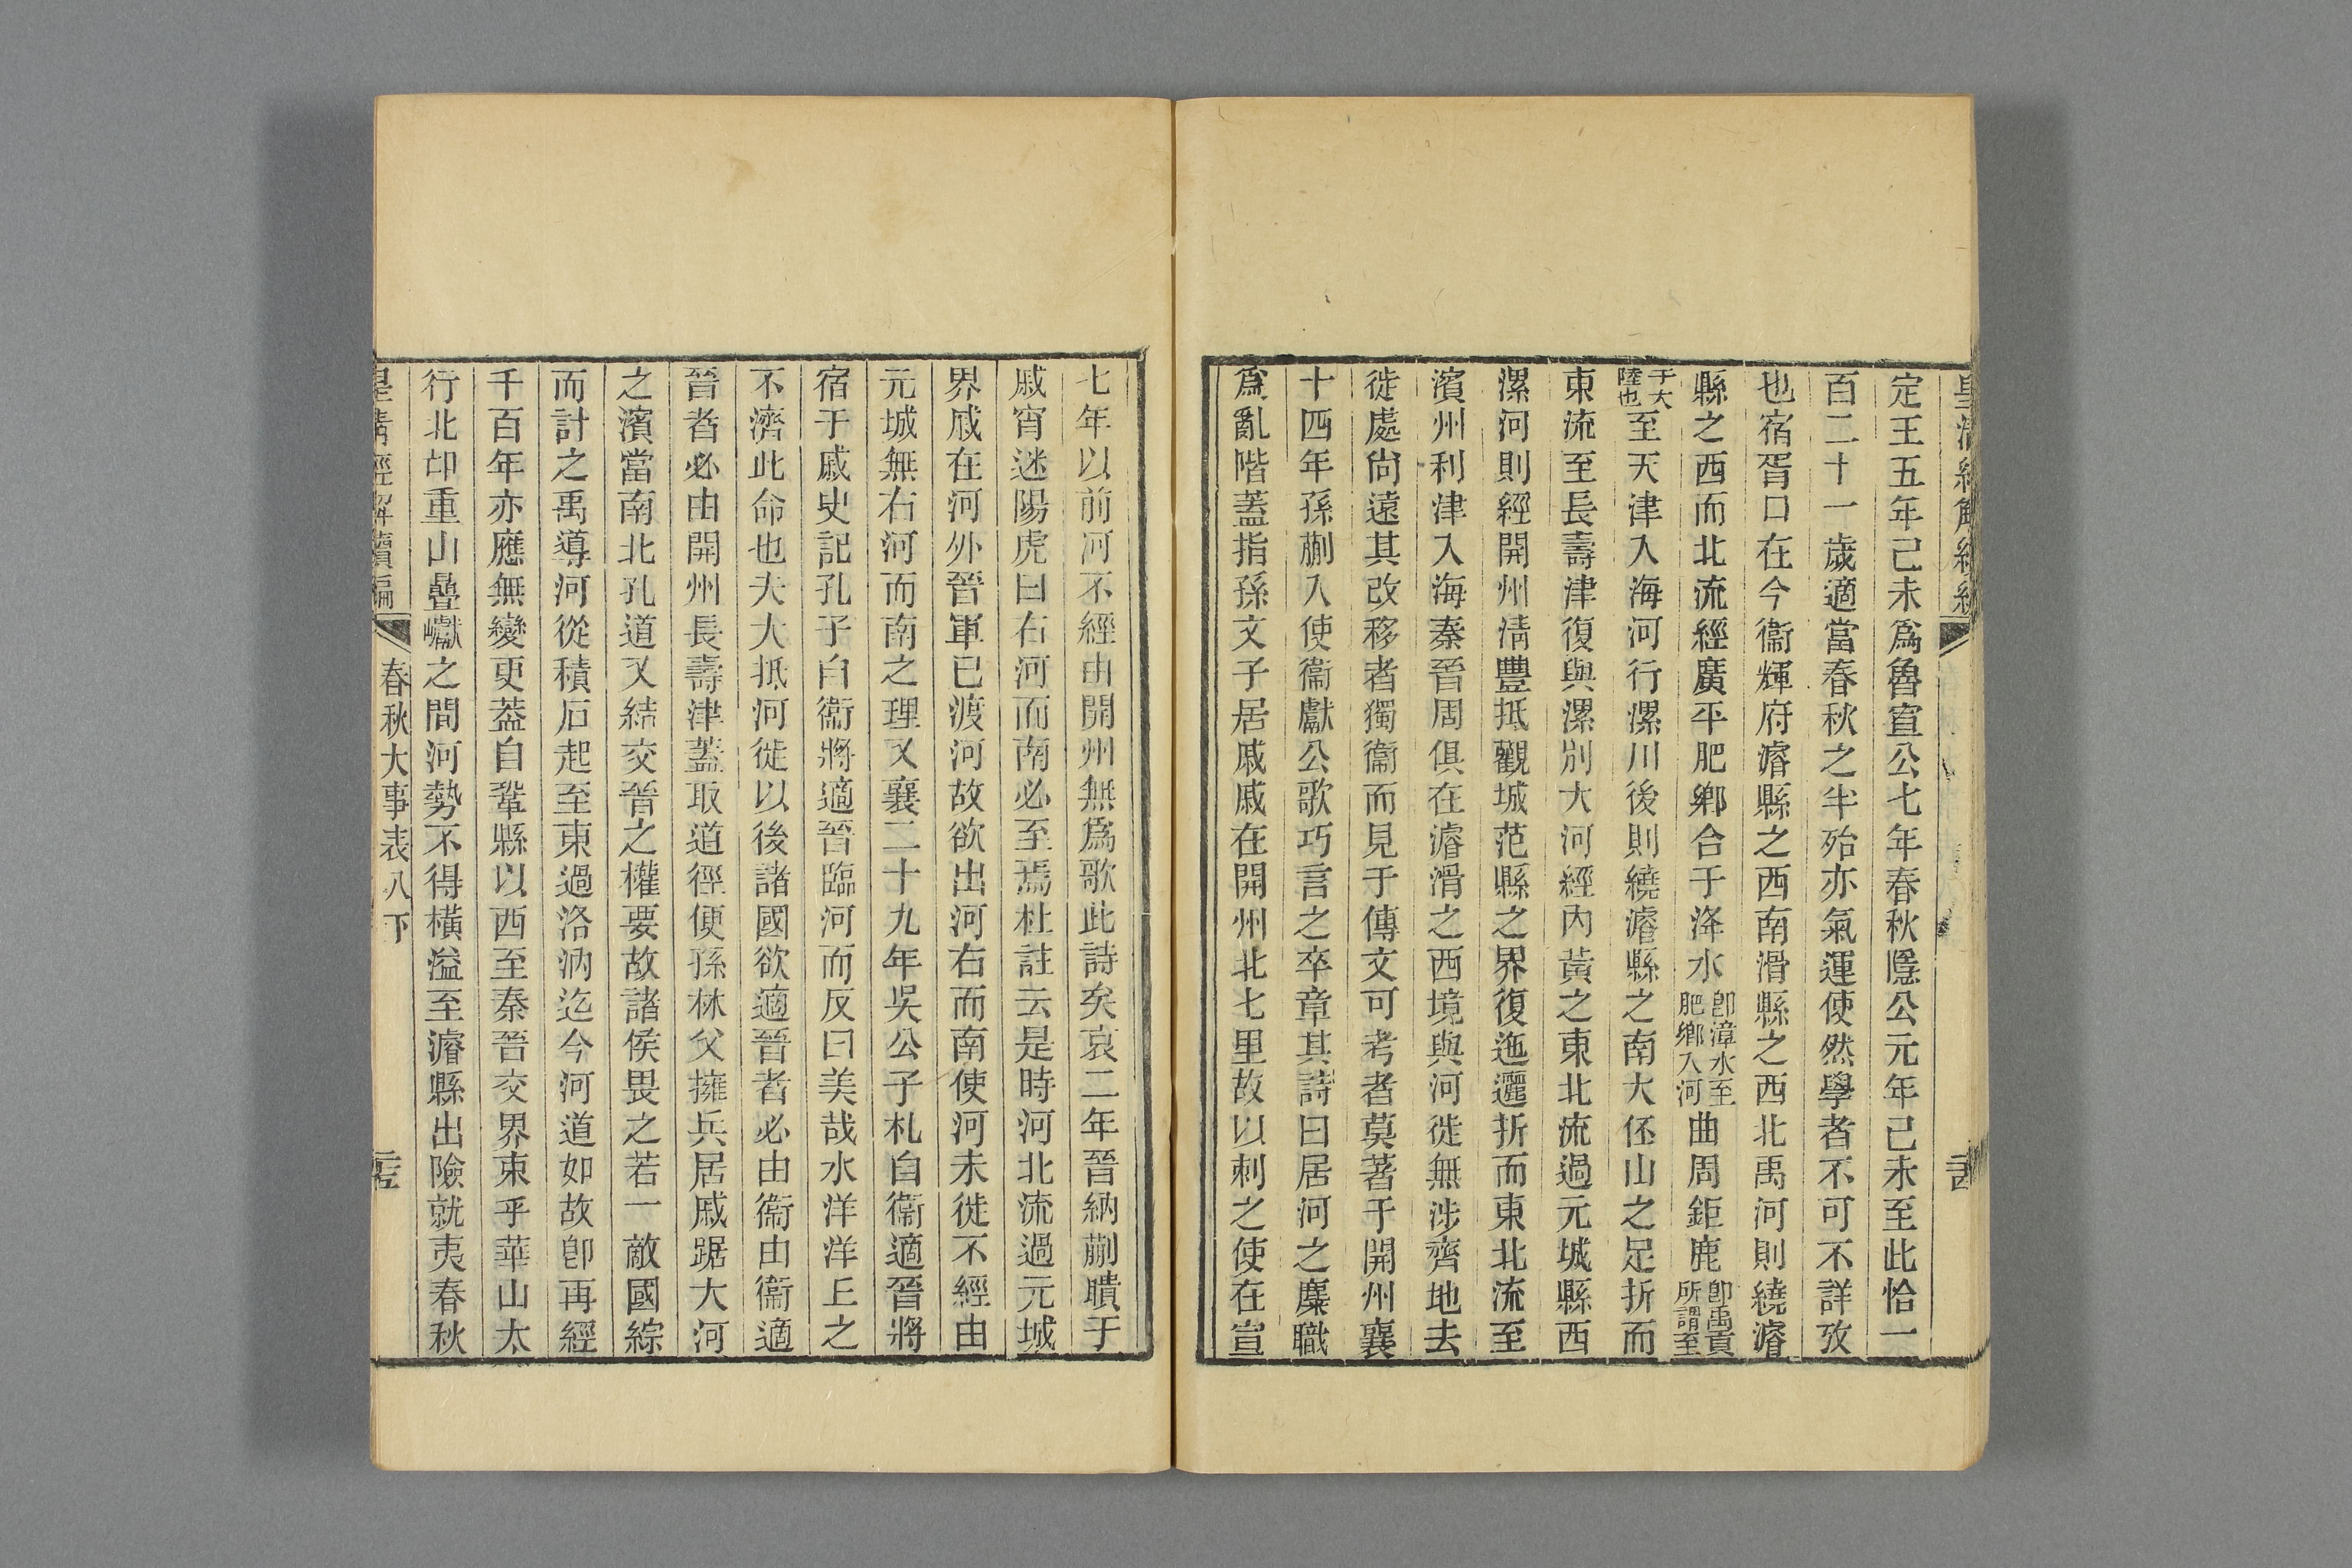 定王五年己未爲魯宣公七年春秋隱公元年己未至此恰一
百二十一歲適當春秋之半殆亦氣運使然學者不可不詳攷
也宿胥口在今衞輝府濬縣之西南滑縣之西北禹河則繞濬
縣之西而北流經廣平肥鄉合于洚水卽漳水至肥鄉入河曲周鉅鹿卽禹貢所謂至
于大陸也至天津入海河行漯川後則繞濬縣之南大伾山之足折而
東流至長壽津復與漯別大河經內黃之東北流過元城縣西
漯河則經開州淸豐抵觀城范縣之界復迤邐折而東北流至
濱州利津入海秦晉周俱在濬滑之西境與河徙無涉齊地去
徙處尙遠其改移者獨衞而見于傳文可考者莫著于開州襄
十四年孫蒯入使衞獻公歌巧言之卒章其詩曰居河之麋職
爲亂階蓋指孫文子居戚戚在開州北七里故以刺之使在宣
七年以前河不經由開州無爲歌此詩矣哀二年晉納蒯聵于
戚宵迷陽虎曰右河而南必至焉杜註云是時河北流過元城
界戚在河外晉軍已渡河故欲出河右而南使河未徙不經由
元城無右河而南之理又襄二十九年吳公子札自衞適晉將
宿于戚史記孔子自衞將適晉臨河而反曰美哉水洋洋上之
不濟此命也夫大抵河徙以後諸國欲適晉者必由衞由衞適
晉者必由開州長壽津蓋取道徑便孫林父擁兵居戚踞大河
之濱當南北孔道又結交晉之權要故諸侯畏之若一敵國綜
而計之禹導河從積石起至東過洛汭迄今河道如故卽再經
千百年亦應無變更葢自鞏縣以西至秦晉交界東乎華山太
行北卬重山疊巘之間河勢不得橫溢至濬縣出險就夷春秋
皇淸經解續編
春秋大事表八下